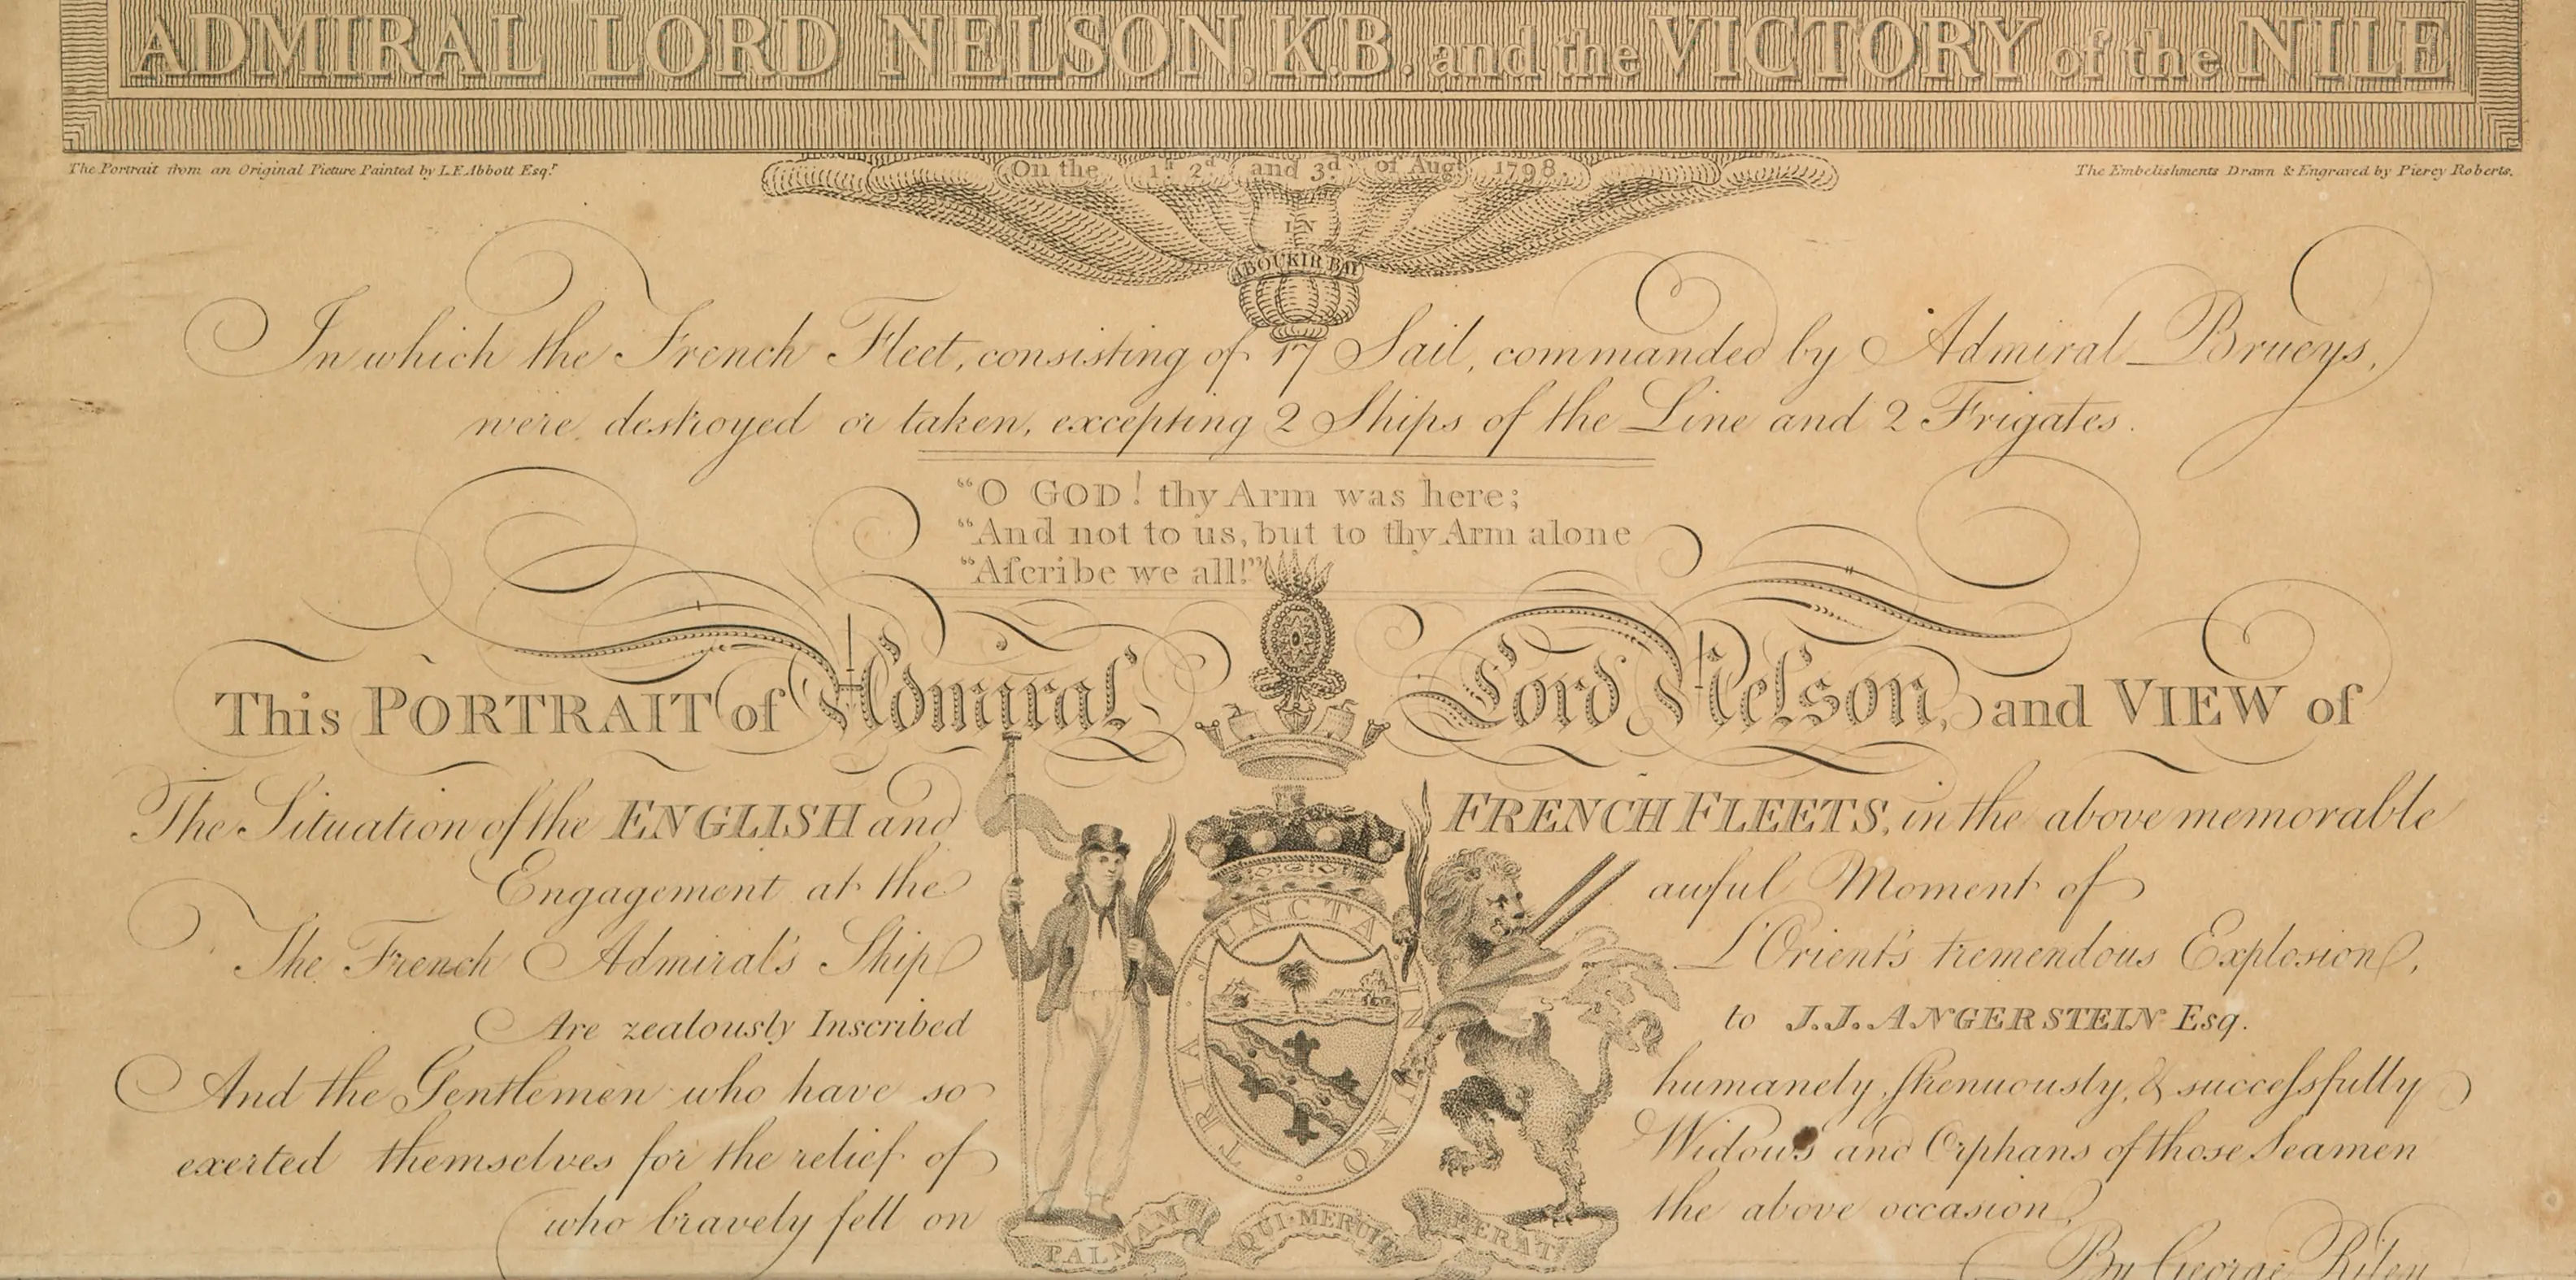 ADMIRAL LORD NELSON, K.B. and the VICTORY of the NILE
The Portrait from an Original Picture Painted by L.F. Abbott Esqr.
On the 1st. 2d and 3d. of Augt. 1798.
The Embelishments Drawn & Engraved by Piercy Roberts.
IN
ABOUKIR BAY
In which the French Fleet, consisting of 17 Sail, commanded by Admiral Brueys,
were destroyed or taken, excepting 2 Ships of the Line and 2 Frigates.
“O GOD! thy Arm was here;
“And not to us, but to thy Arm alone
“Aſcribe we all!”
This PORTRAIT of Admiral Lord Nelson, and VIEW of
The Situation of the ENGLISH and FRENCH FLEETS, in the above memorable
Engagement at the awful Moment of
The French Admiral's Ship L'Orient's tremendous Explosion,
Are zealously Inscribed to J.J. ANGERSTEIN Esq.
And the Gentlemen who have so humanely, ſtrenuously, & succeſsfully
exerted themselves for the relief of Widows and Orphans of those Seamen
who bravely fell on the above occasion,
TRIA · JUNCTA · IN · UNO
PALMAM QUI · MERUIT FERAT
By George Riley